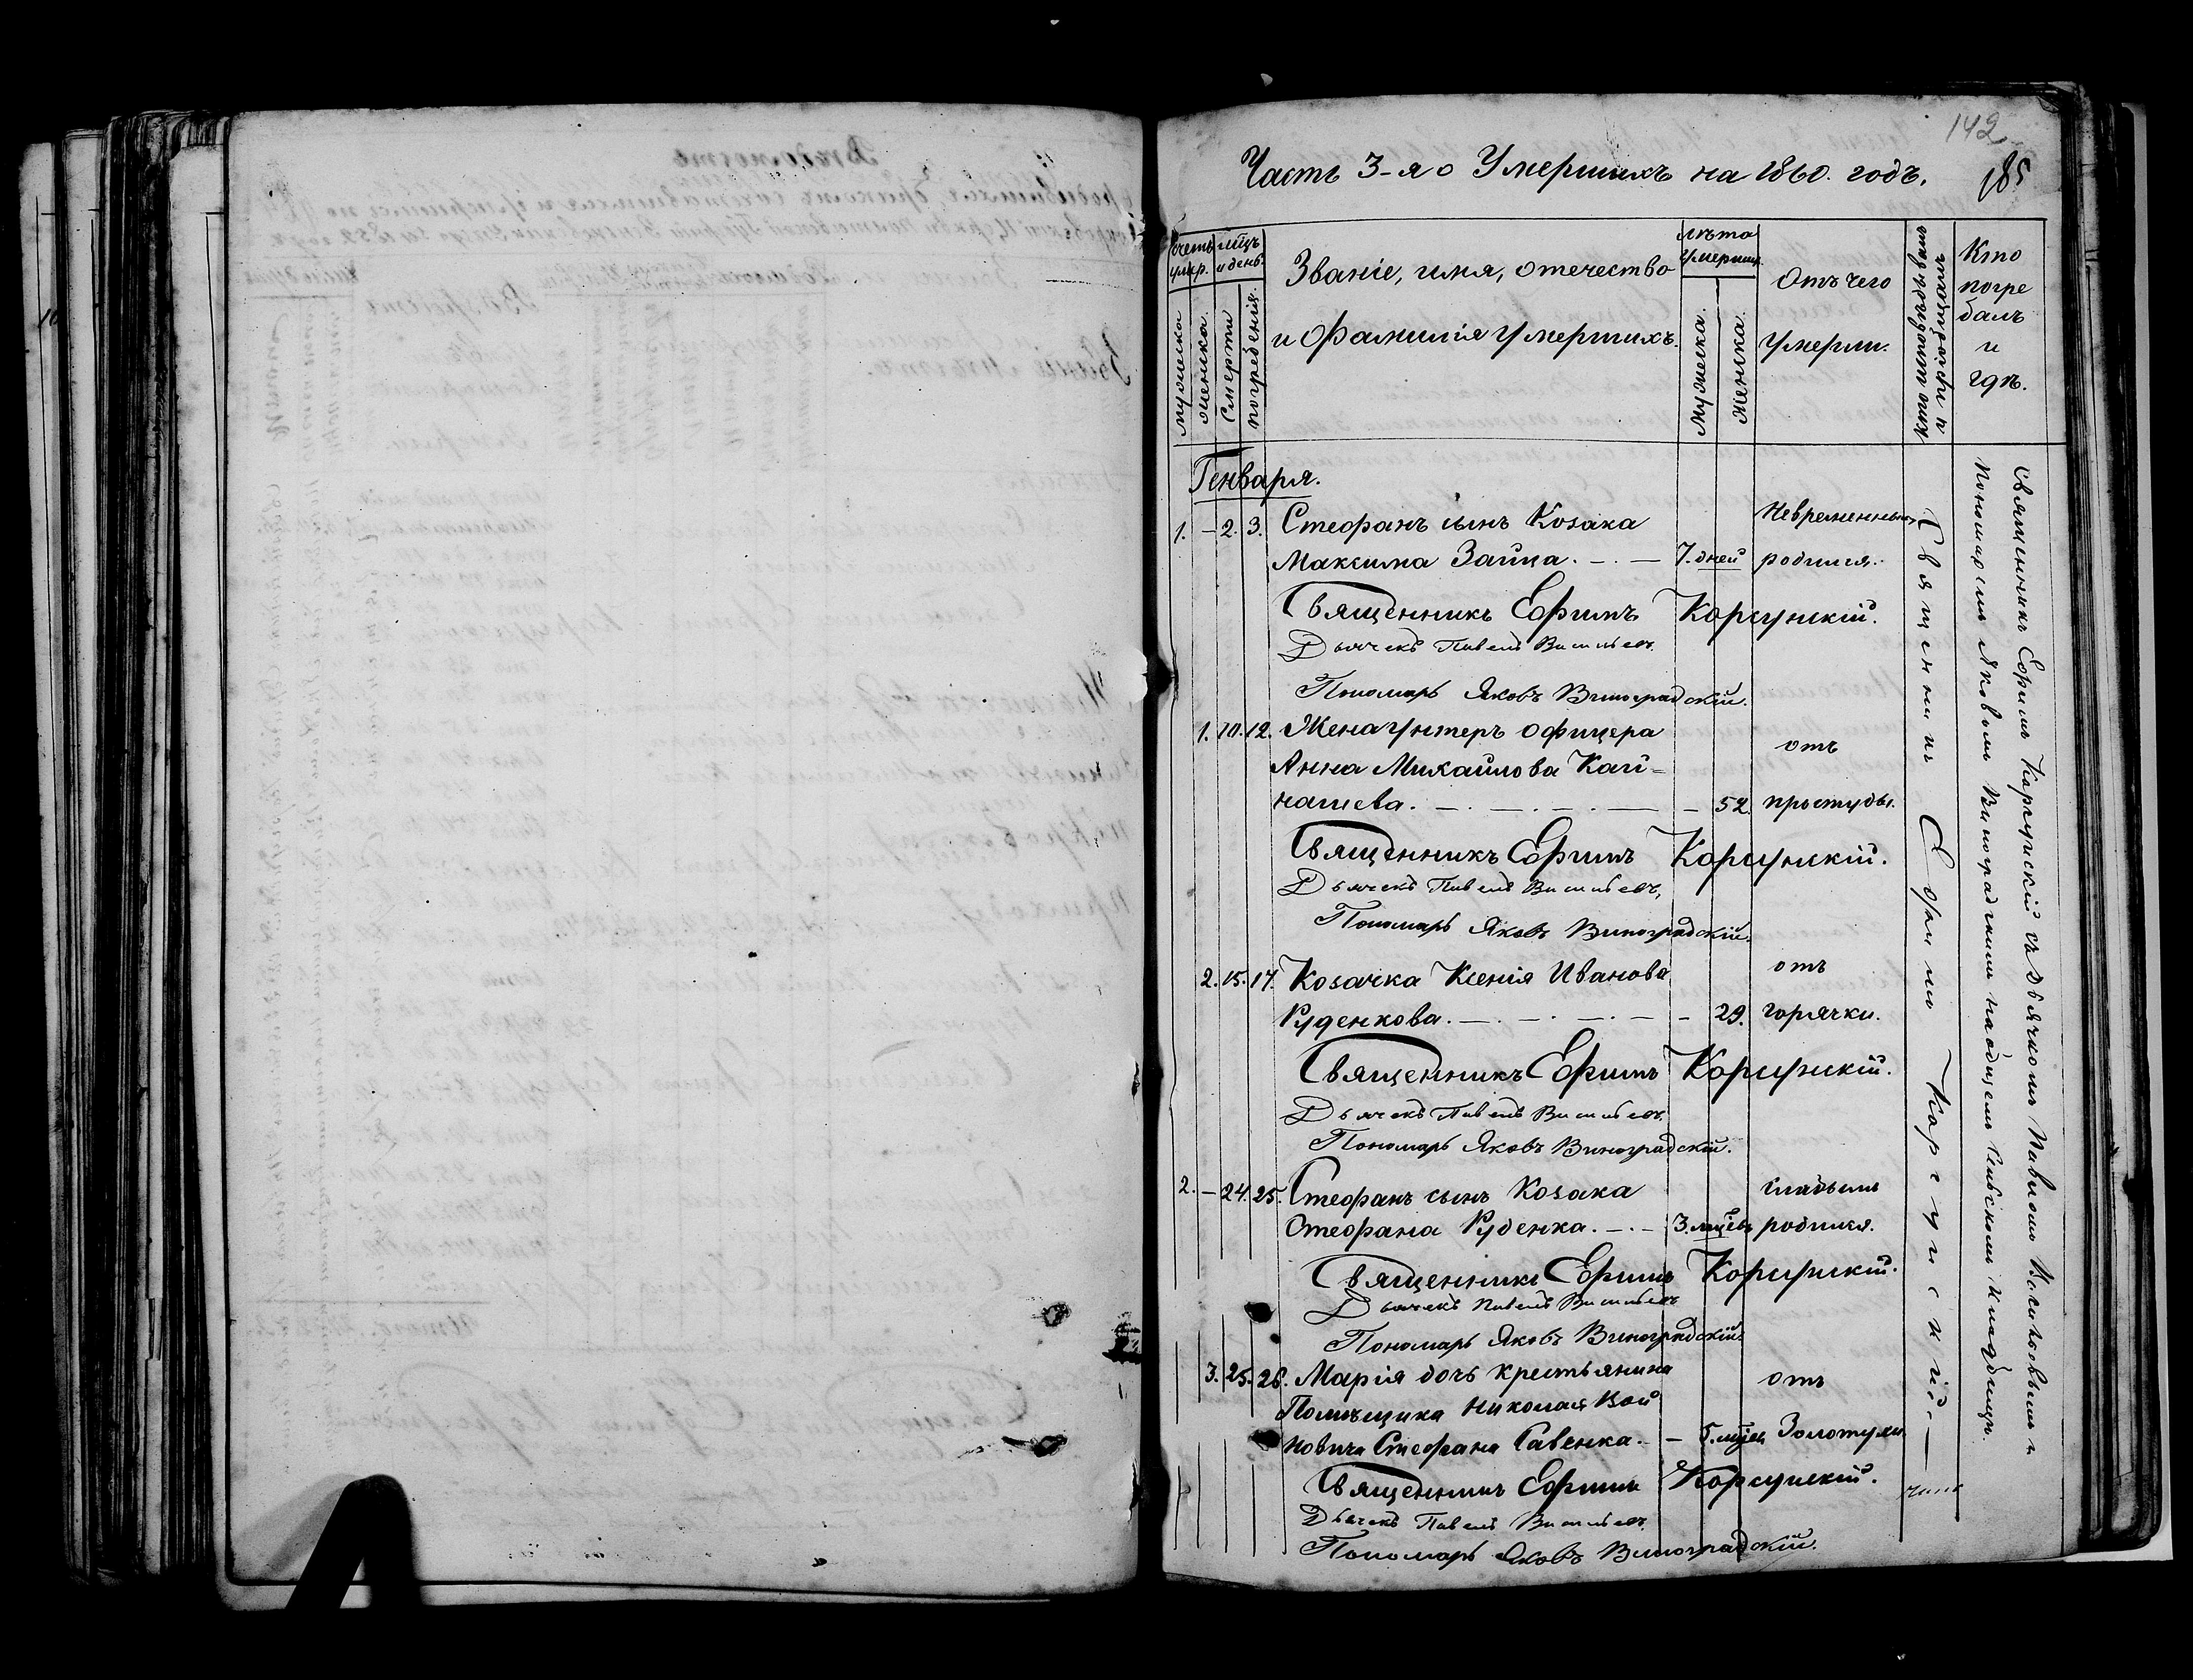 142
Часть 3-я о Умершихъ на 1860. годъ.
185
счетъ умер.
мцъ и день.
Званіе, имя, отечество
и Фамилія Умершихъ.
лѣта Умерших.
Отъ чего
Умерли.
Кто исповѣдывалъ
и пріобщалъ
Кто
погре
балъ
и
гдѣ.
мужеска
женска
Смерти
погребенія.
мужеска.
женска.
Генваря.
1. — 2. 3. Стефанъ сынъ Козака Невременный
Максима Зайца. — . — 7. дней родился.
Священникъ Ефимъ Корсунскій.
Дьячекъ Павелъ Васильевъ.
Пономарь Яковъ Виноградскій.
1. 10. 12. Жена Унтеръ офицера отъ
Анна Михайлова Кай=
нашева. — . — . — . — — 52. простуды.
Священникъ Ефимъ Корсунскій.
Дьячекъ Павелъ Васильевъ,
Пономарь Яковъ Виноградскій.
2. 15. 17. Козачка Ксенія Иванова отъ
Руденкова. — . — . — . — — 29. горячки.
Священникъ Ефимъ Корсунскій.
Дьячекъ Павелъ Васильевъ.
Пономарь Яковъ Виноградскій.
2. — 24. 25. Стефанъ сынъ Козака слабымъ
Стефана Руденка. — . — 3. мцевъ родился.
Священникъ Ефимъ Корсунскій.
Дьячекъ Павелъ Васильевъ
Пономарь Яковъ Виноградскій.
3. 25. 26. Марія дочь крестьянина отъ
Помѣщика Николая Вой
новича Стефана Савенка. — — 5. мцев Золотухи
Священникъ Ефимъ Корсунскій.
Дьячекъ Павелъ Васильевъ.
Пономарь Яковъ Виноградскій.
Священникъ Ефимъ Корсунскій. —
Священникъ Ефимъ Корсунскій съ Дьячкомъ Павломъ Васильевымъ и
Пономаремъ Яковомъ Виноградскимъ на общемъ Сельскомъ Кладбищѣ.